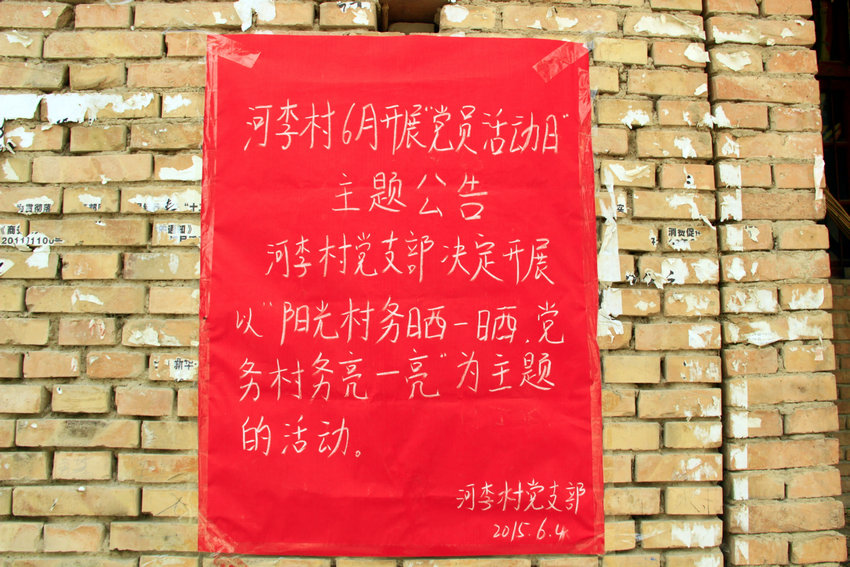 河李村6月开展“党员活动日”
主题公告
河李村党支部决定开展
以“阳光村务晒一晒，党
务村务亮一亮”为主题
的活动。
河李村党支部
2015.6.4
为贯彻落
2011/1100
消费促
新华